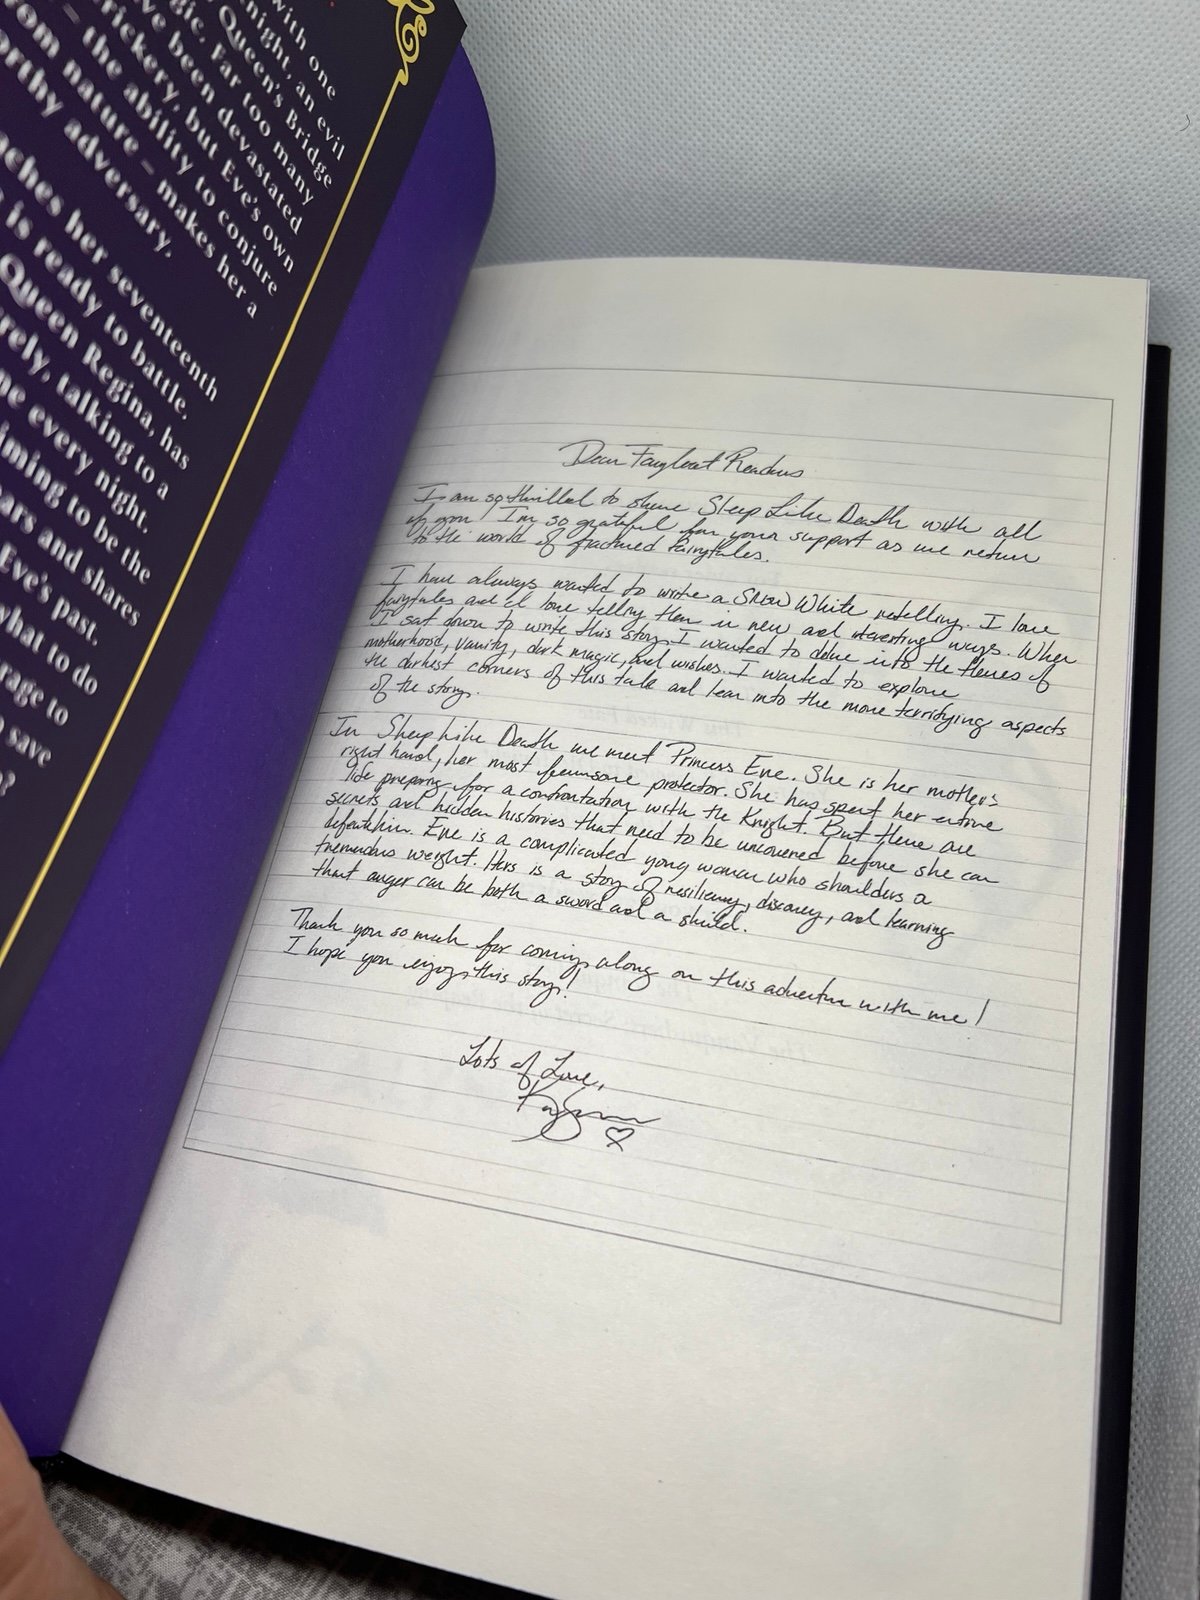 with one
night, an evil
Queen's Bridge
gic. Far too many
ve been devastated
rickery, but Eve's own
– the ability to conjure
rom nature – makes her a
orthy adversary.
aches her seventeenth
is ready to battle,
Queen Regina, has
rely, talking to a
me every night,
iming to be the
ars and shares
Eve's past,
what to do
rage to
save
?
Dear Fairyloot Readers
I am so thrilled to share Sleep Like Death with all
of you! I'm so grateful for your support as we return
to the world of fractured fairytales.
I have always wanted to write a Snow White retelling. I love
fairytales and I love telling them in new and interesting ways. When
I sat down to write this story I wanted to delve into the themes of
motherhood, vanity, dark magic, and wishes. I wanted to explore
the darkest corners of this tale and lean into the more terrifying aspects
of the story.
In Sleep Like Death we meet Princess Eve. She is her mother's
right hand, her most fearsome protector. She has spent her entire
life preparing for a confrontation with the Knight. But there are
secrets and hidden histories that need to be uncovered before she can
defeat him. Eve is a complicated young woman who shoulders a
tremendous weight. Hers is a story of resiliency, discovery, and learning
that anger can be both a sword and a shield.
Thank you so much for coming along on this adventure with me!
I hope you enjoy this story!
Lots of Love,